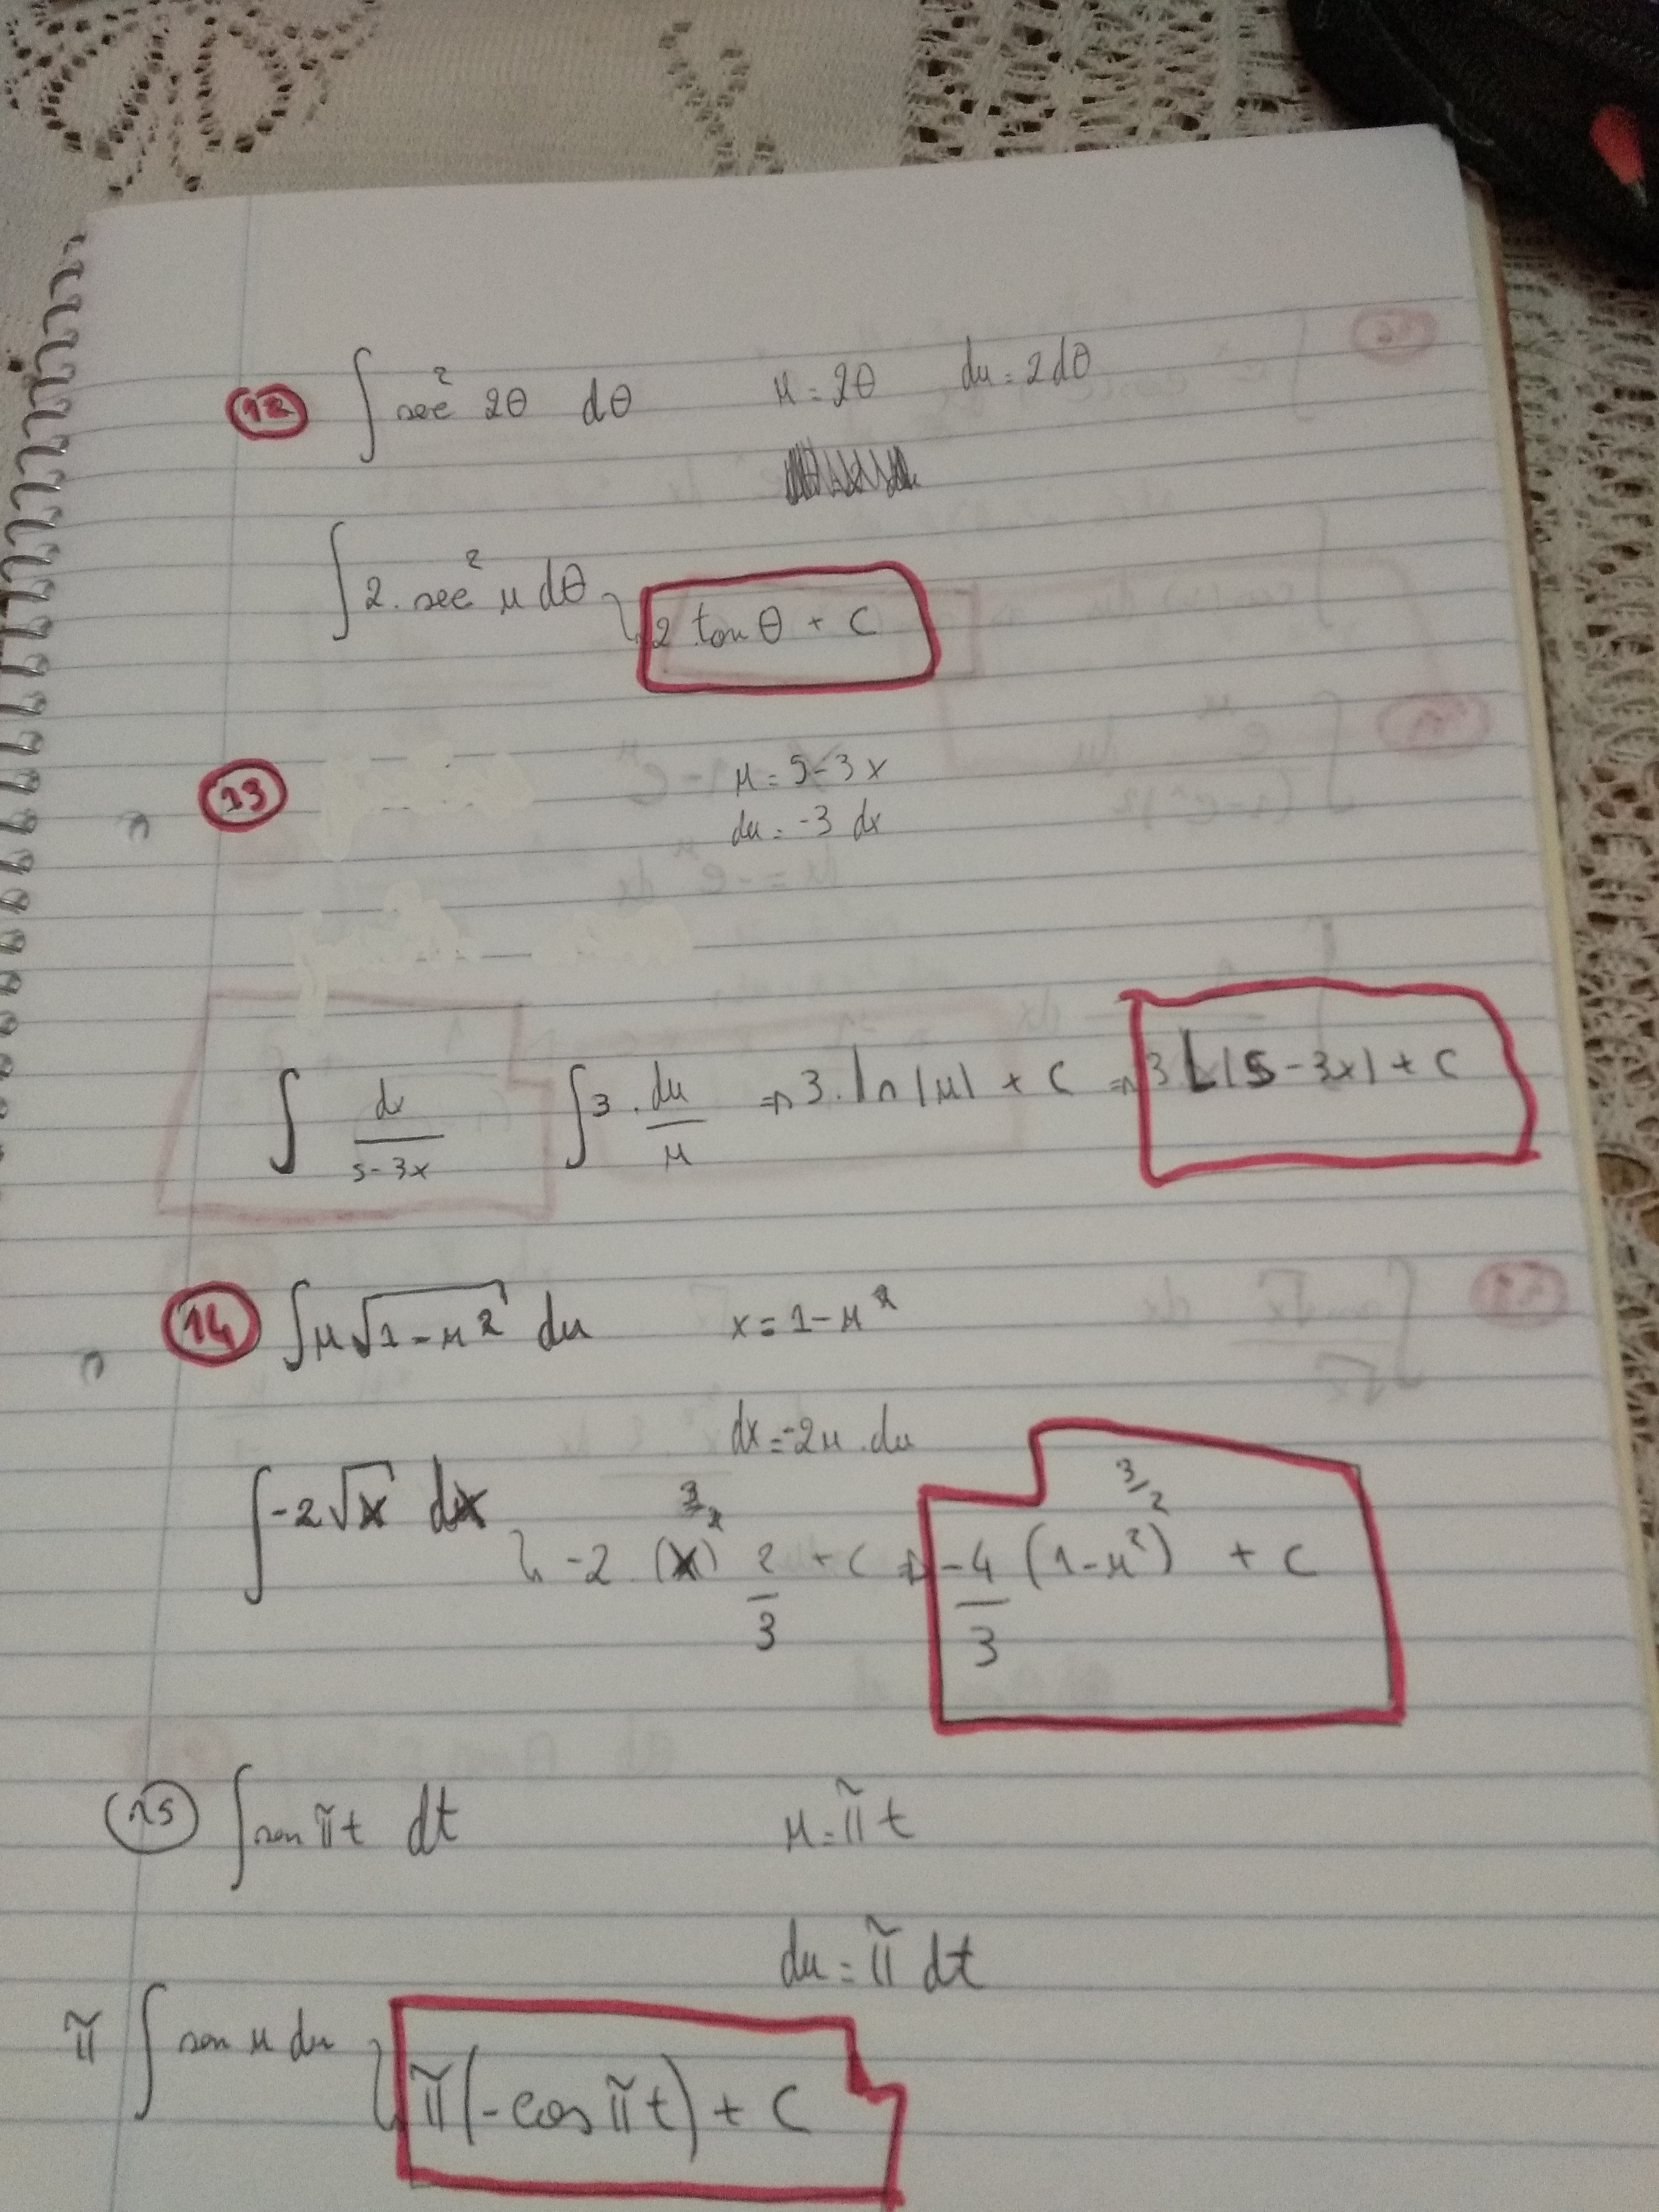 12 ∫ sec² 2θ dθ μ = 2θ du = 2dθ
∫ 2. sec² μ dθ 2 tan θ + C
13 μ = 5-3x
du = -3 dx
∫ dx/(5-3x) ∫ 3. du/μ ⇒ 3. ln |μ| + C ⇒ 3 L|5-3x| + C
14 ∫ μ √(1-μ²) du x = 1-μ²
dx = -2μ. du
∫ -2 √x dx -2. (x)^(3/2) 2/3 + C ⇒ -4/3 (1-μ²)^(3/2) + C
15 ∫ sen πt dt μ = πt
du = π dt
π ∫ sen μ du π(-cos πt) + C